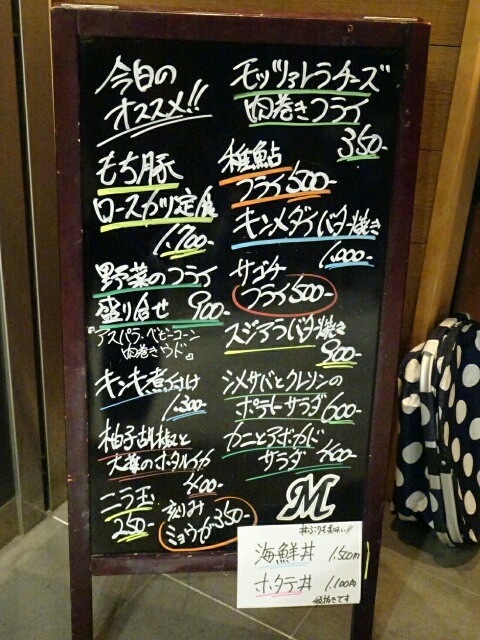 今日の
オススメ!!
もち豚
ロースカツ定食
1,700-
野菜のフライ
盛り合せ 900-
『アスパラ・ベビーコーン
肉巻きウド』
キンキ煮付け
1,300-
柚子胡椒と
大葉のホタルイカ
400-
ニラ玉
250-
刻み
ミョウガ 350-
モッツァレラチーズ
肉巻きフライ
350-
稚鮎
フライ 500-
キンメダイバター焼き
1,000-
サゴチ
フライ 500-
スジアラバター焼き
900-
シメサバとクレソンの
ポテトサラダ 600-
カニとアボカド
サラダ 400-
M
丼ぶりも美味い!!
海鮮丼 1,500円
ホタテ丼 1,100円
税抜きです